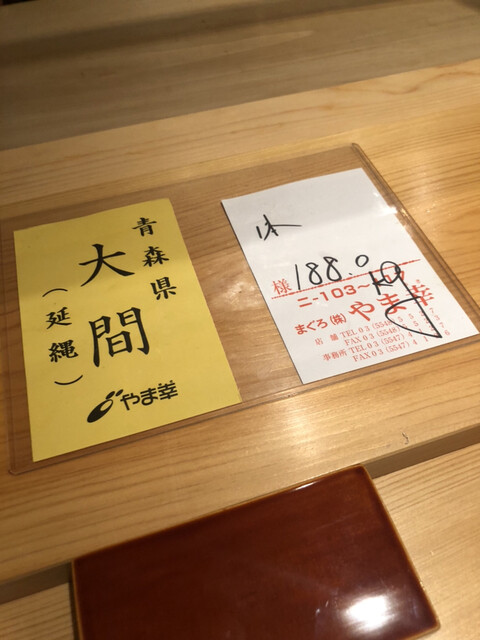 青森県
大間
(延縄)
やま幸
様
188.0
ニ-103~
まぐろ(株)やま幸
店舗 TEL 03(5548)
FAX 03(5548)
事務所 TEL 03(5547)
FAX 03(5547)